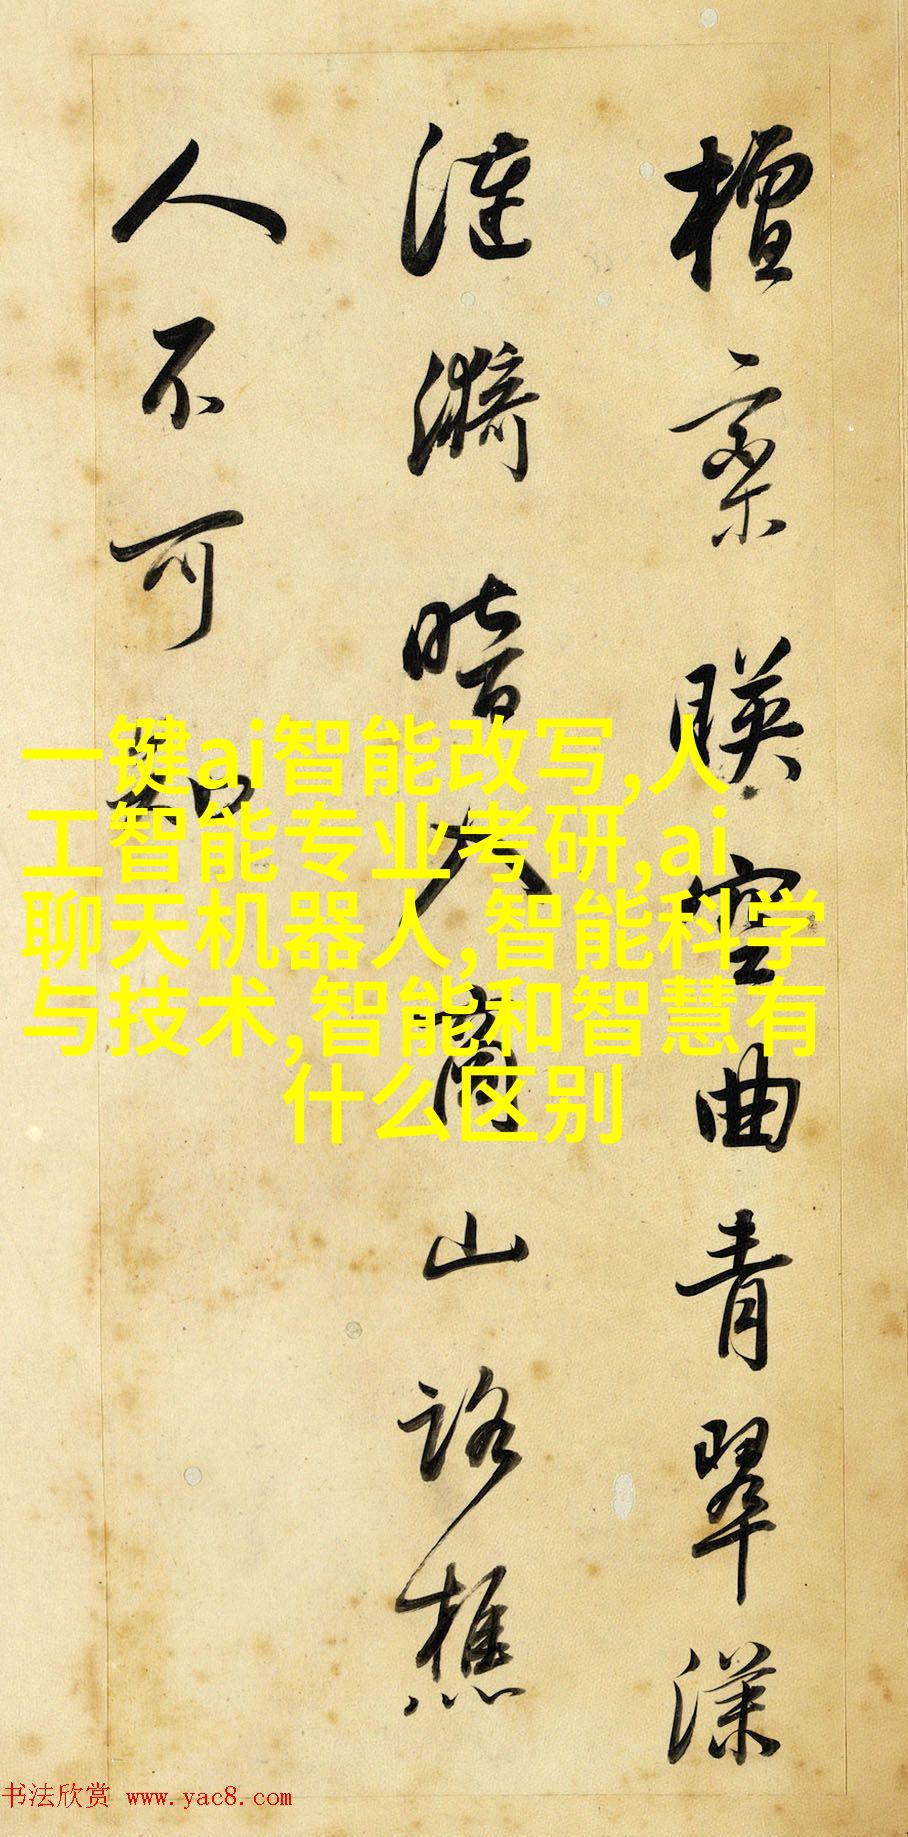 檀栾暎空曲青翠漾
涟漪暗入商山路樵
人不可知
一键ai智能改写,人
工智能专业考研,ai
聊天机器人,智能科学
与技术,智能和智慧有
什么区别
书法欣赏 www.yac8.com